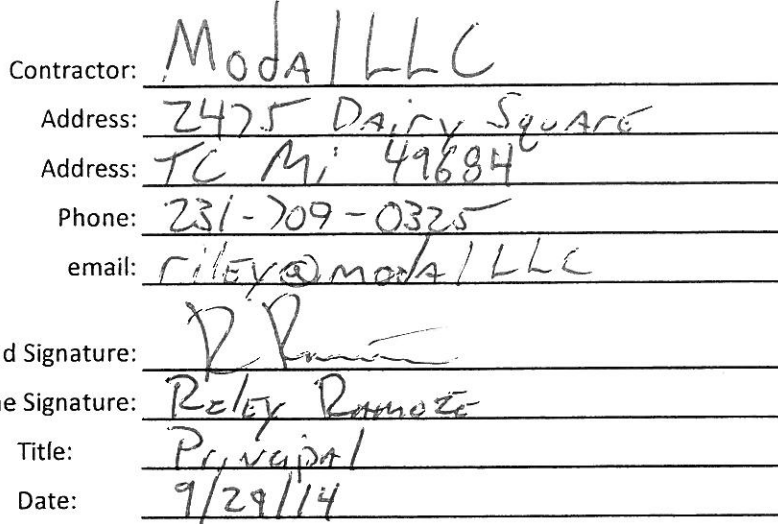 Contractor: Modal LLC
Address: 2475 Dairy Square
Address: TC Mi 49684
Phone: 231-709-0325
email: riley@modalLLC
d Signature:
e Signature: Riley
Title: Principal
Date: 9/29/14